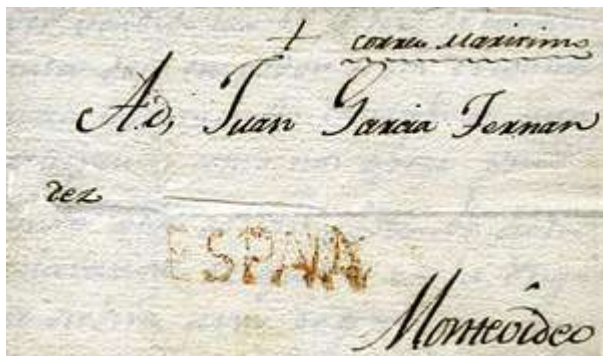 + correo Maritimo
A D, Juan Garcia Fernan
dez
ESPAÑA
Montevideo